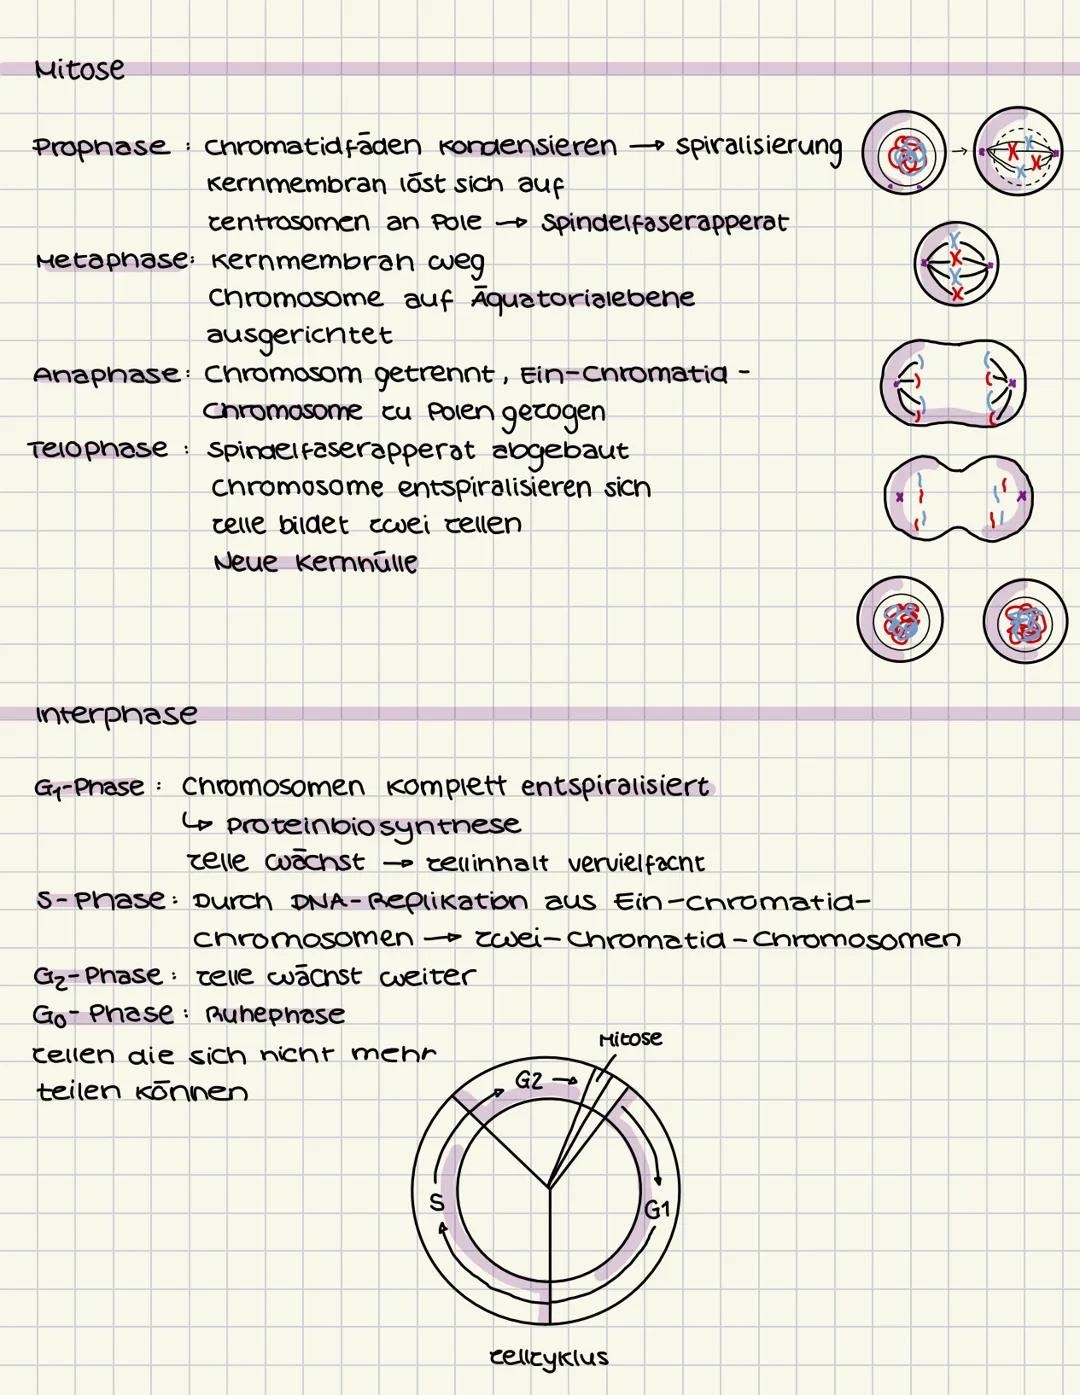 Mitose
Prophase : Chromatidfäden kondensieren → Spiralisierung
Kernmembran löst sich auf
Zentrosomen an Pole → Spindelfaserapperat
Metaphase: Kernmembran weg
Chromosome auf Äquatorialebene
ausgerichtet
Anaphase: Chromosom getrennt, Ein-Chromatid-
Chromosome zu Polen gezogen
Telophase : Spindelfaserapperat abgebaut
Chromosome entspiralisieren sich
Zelle bildet zwei Zellen
Neue Kernhülle
Interphase
G₁-Phase : Chromosomen komplett entspiralisiert
↳ Proteinbiosynthese
Zelle wächst → Zellinhalt vervielfacht
S-Phase: Durch DNA-Replikation aus Ein-Chromatid-
Chromosomen → Zwei-Chromatid-Chromosomen
G₂-Phase : Zelle wächst weiter
G₀-Phase : Ruhephase
Zellen die sich nicht mehr
teilen können
Mitose
G2 →
S
G1
Zellzyklus